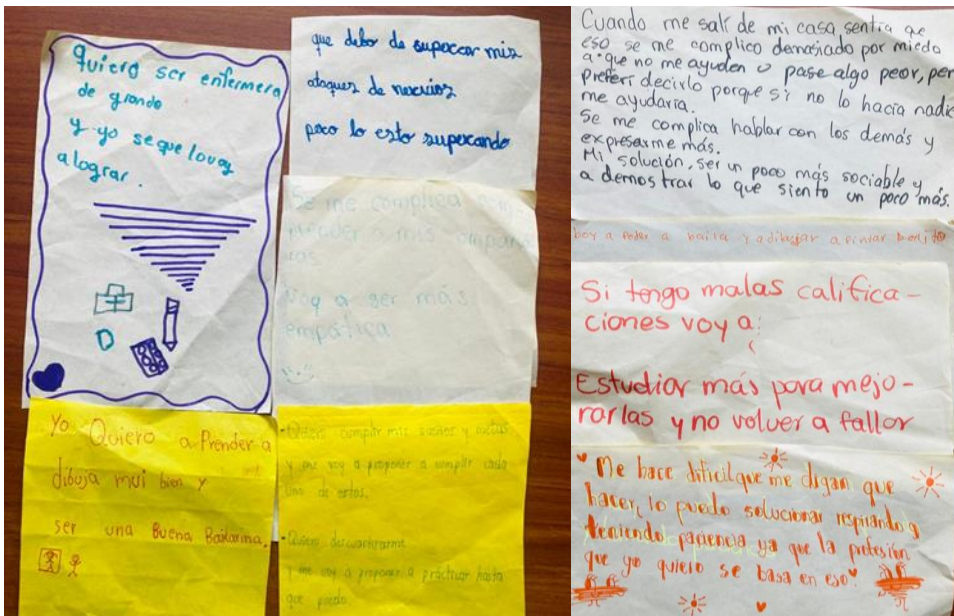 quiero ser enfermera
de grande
y yo se que lo voy
a lograr.
Yo Quiero a Prender a
dibuja mui bien y
ser una Buena Bailarina.
que debo de superar mis
ataques de nervios
poco lo esto superando
Se me complica com-
prender a mis compañe
ras
Voy a ser más
empática
- Quiero cumplir mis sueños y metas
y me voy a proponer a cumplir cada
uno de estos.
- Quiero
y me voy a proponer a practicar hasta
que pueda.
Cuando me salí de mi casa sentía qe
eso se me complico demasiado por miedo
a que no me ayuden o pase algo peor, per
preferí decirlo porque si no lo hacía nadie
me ayudaría.
Se me complica hablar con los demás y
expresarme más.
Mi solución, ser un poco más sociable y
a demostrar lo que siento un poco más.
boy a a baila y a dibujar a pintar bonito
Si tengo malas califica-
ciones voy a:
Estudiar más para mejo-
rarlas y no volver a fallar
Me hace dificil que me digan que
hacer, lo puedo solucionar respirando y
teniendo paciencia ya que la profesion
que yo quiero se basa en eso